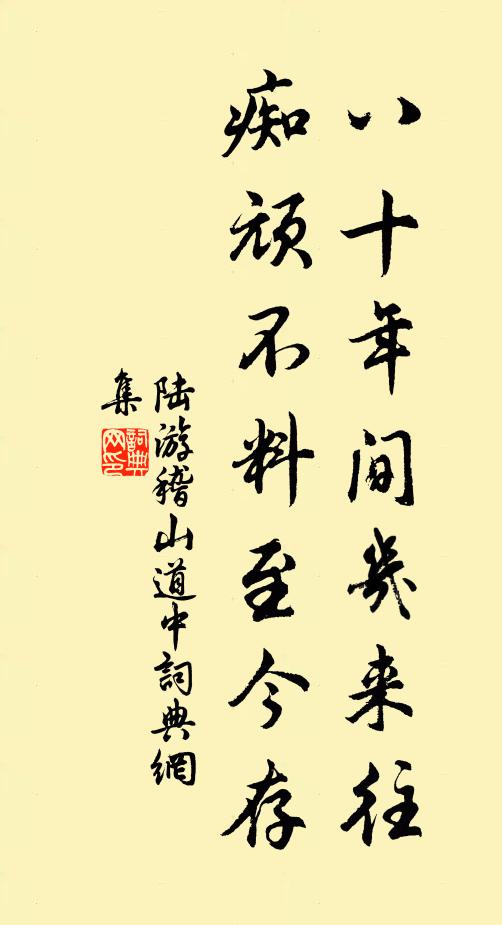 八十年间几来往
痴顽不料至今存
陆游稽山道中詞典網
集
詞典网印